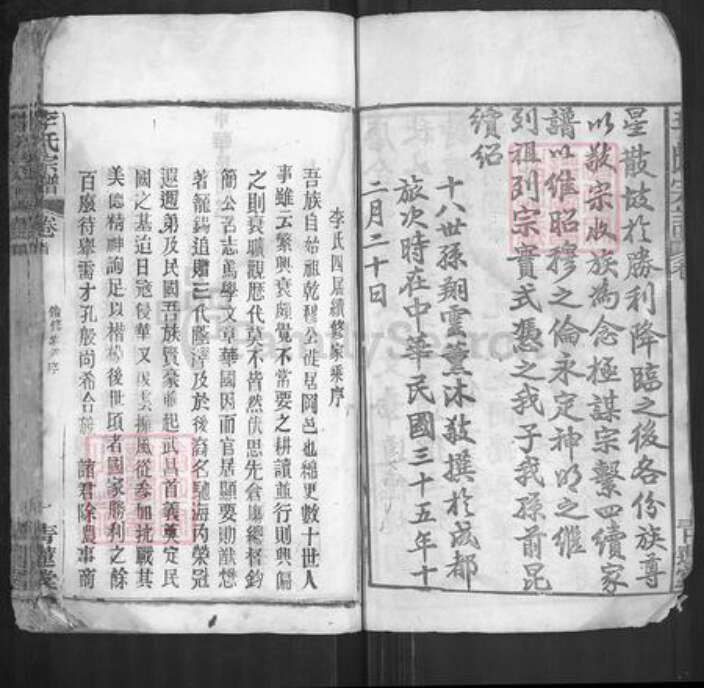 星散故於勝利降臨之後各份族尊
以敬宗收族為念極謀宗繫四續家
譜以維昭穆之倫永定神明之繼
列祖列宗實式憑之我子我孫前昆
續紹
十八世孫翔雲薰沐敬撰於成都
旅次時在中華民國三十五年十
二月二十日
李氏四屆續修家乘序
吾族自始祖乾穆公徙居岡邑也綿更數十世人
事雖云繁興衰頗覺不常要之耕讀並行則興偏
之則衰職觀歷代莫不皆然伏思先倉廩總督鈞
簡公苦志為學文章華國因而官居顯要助猷懋
著龍錫追贈三代隆澤及於後裔名馳海內榮冠
遐邇弟及民國吾族賢豪並起武昌首義奠定民
國之基迨日寇侵華又 風從參加抗戰其
美德精神詢足以楷模後世頃者國家勝利之餘
百廢待舉需才孔殷尚希合族 諸君除農事商
李氏宗譜 卷首
續修家乘序
一 青蓮堂